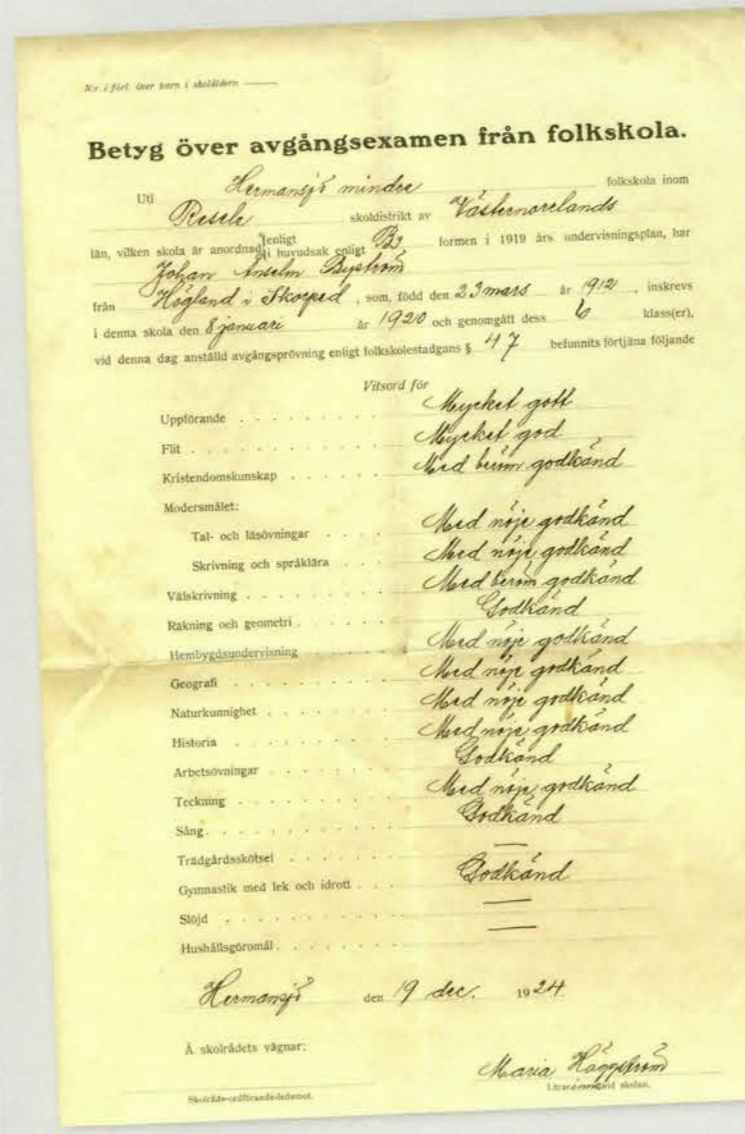 N:r i förl. över barn i skolåldern
Betyg över avgångsexamen från folkskola.
Uti Hermansjö mindre folkskola inom
Resele skoldistrikt av Västernorrlands
län, vilken skola är anordnad enligt
i huvudsak enligt B3 formen i 1919 års undervisningsplan, har
Johan Anselm Byström
från Högland i Skorped, som, född den 23 mars år 1912, inskrevs
i denna skola den 8 januari år 1920 och genomgått dess 6 klass(er),
vid denna dag anställd avgångsprövning enligt folkskolestadgans § 47 befunnits förtjäna följande
Vitsord för
Uppförande Mycket gott
Flit Mycket god
Kristendomskunskap Med beröm godkänd
Modersmålet:
Tal- och läsövningar Med nöje godkänd
Skrivning och språklära Med nöje godkänd
Välskrivning Med beröm godkänd
Räkning och geometri Godkänd
Hembygdsundervisning Med nöje godkänd
Geografi Med nöje godkänd
Naturkunnighet Med nöje godkänd
Historia Med nöje godkänd
Arbetsövningar Godkänd
Teckning Med nöje godkänd
Sång Godkänd
Trädgårdsskötsel —
Gymnastik med lek och idrott Godkänd
Slöjd —
Hushållsgöromål —
Hermansjö den 19 dec. 1924.
Å skolrådets vägnar:
Maria Häggström
Skolråds-ordförande-ledamot. Lärarinna vid skolan.